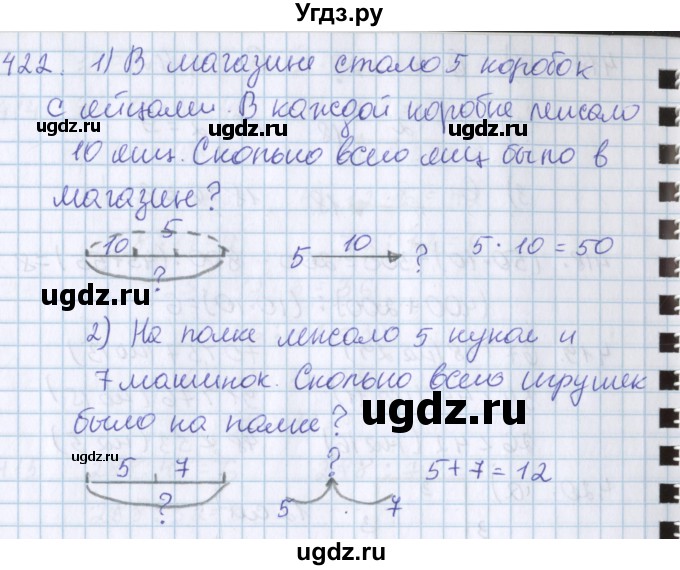 Угдз.ру
422. 1) В магазине стало 5 коробок
с яйцами. В каждой коробке лежало
10 яиц. Сколько всего яиц было в
магазин?
10 5 ? 5 10 ? 5 · 10 = 50
2) На полке лежало 5 кукол и
7 машинок. Сколько всего игрушек
было на полке?
5 7 ? 5 ? 7 5 + 7 = 12
ugdz.ru
ugdz.ru
ugdz.ru
ugdz.ru
ugdz.ru
ugdz.ru
ugdz.ru
ugdz.ru
ugdz.ru